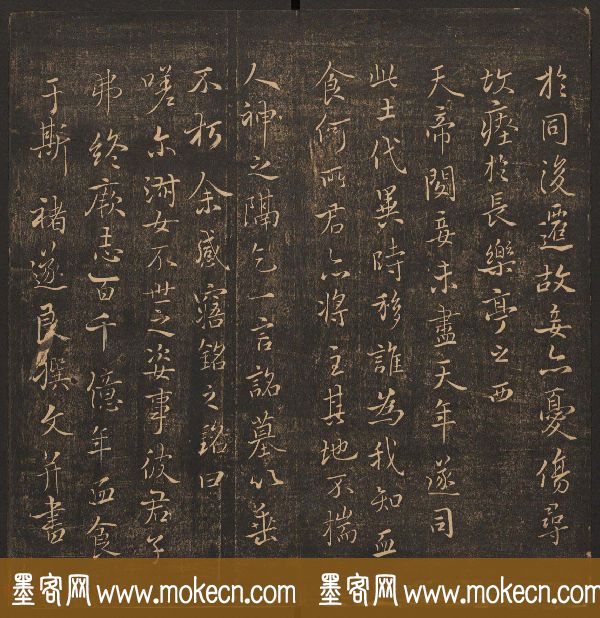 於同浚遷故妾亦憂傷尋
故瘞於長樂亭之西
天帝閔妾未盡天年遂司
此土代異時移誰為我知血
食何所君亦將主其地不揣
人神之隔乞一言詺墓以垂
不朽余感寤銘之銘曰
嗟尔淑女不世之姿事彼君子
弗終厥志百千億年血食
于斯 褚遂良撰文并書
墨客网 www.mokecn.com 墨客网 www.mokecn.com